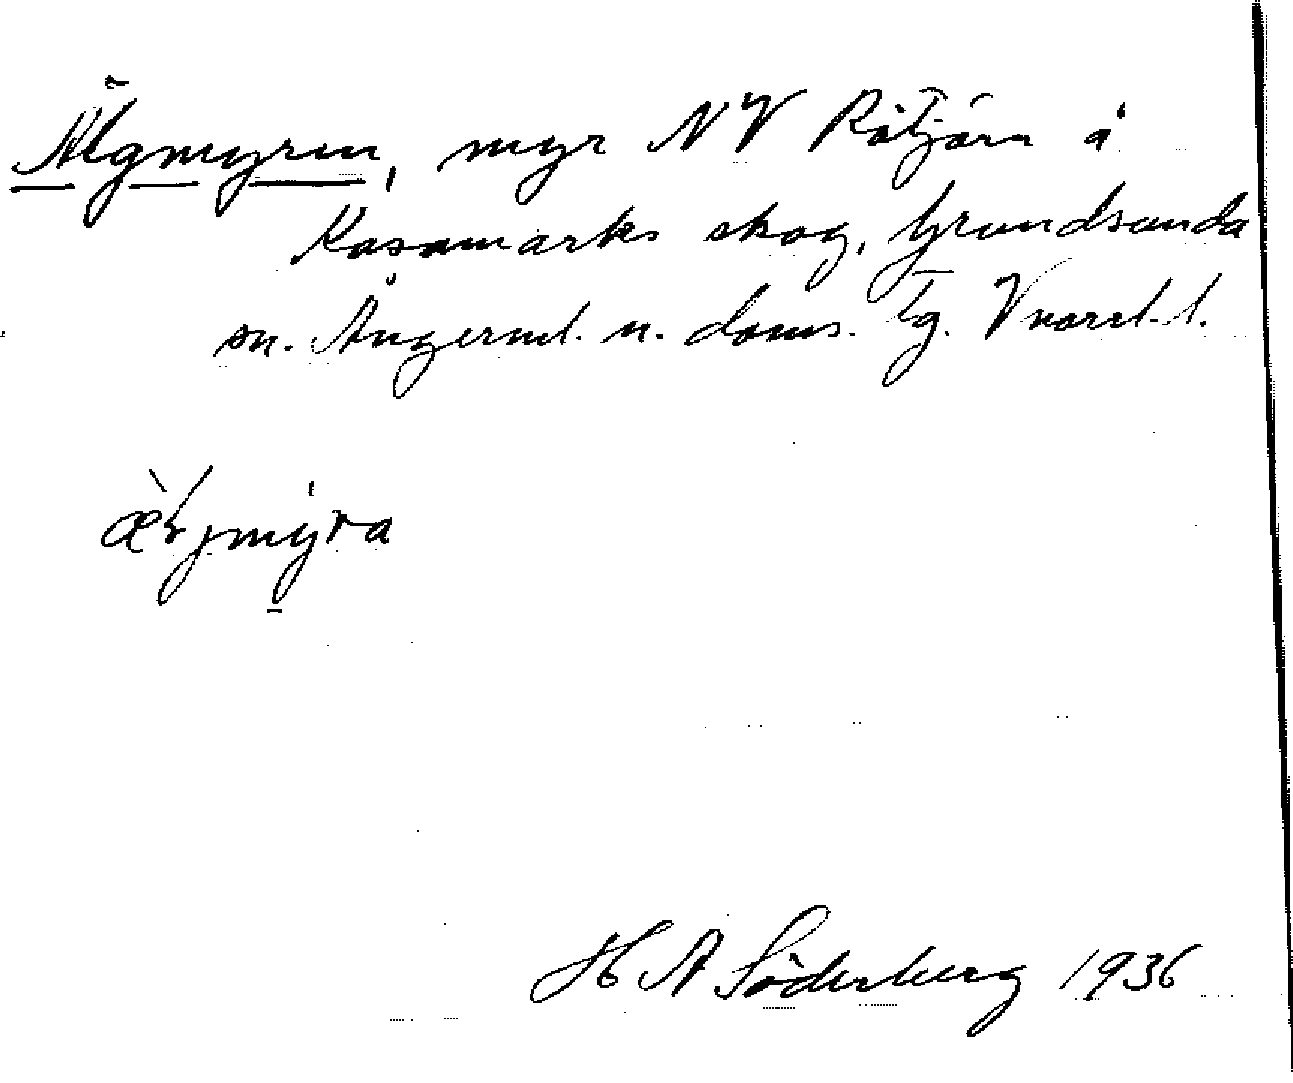 Älgmyren, myr NV Råtjärn å
Kasamarks skog, Grundsunda
sn. Ångerml. n. doms. tg. Vnorrl. l.
æ̀ɽjmýra
H A Söderberg 1936